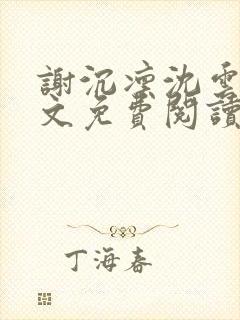 謝沉凛沈雲
文免費閱讀
丁海春